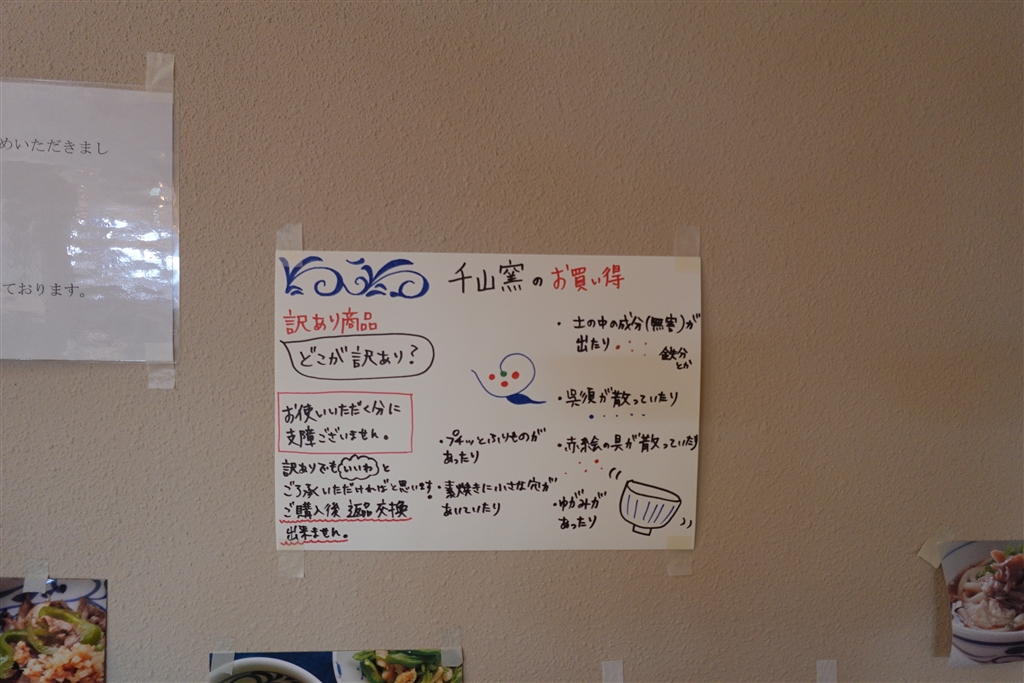 めいただきまし
ております。
千山窯のお買い得
訳あり商品
どこが訳あり?
お使いいただく分に
支障ございません。
訳ありでもいいわと
ご了承いただければと思います。
ご購入後 返品交換
出来ません。
・プチッとふりものが
あったり
・素焼きに小さな穴が
あいていたり
・土の中の成分(無害)が
出たり
鉄分
とか
・呉須が散っていたり
・赤絵の具が散っていたり
・ゆがみが
あったり